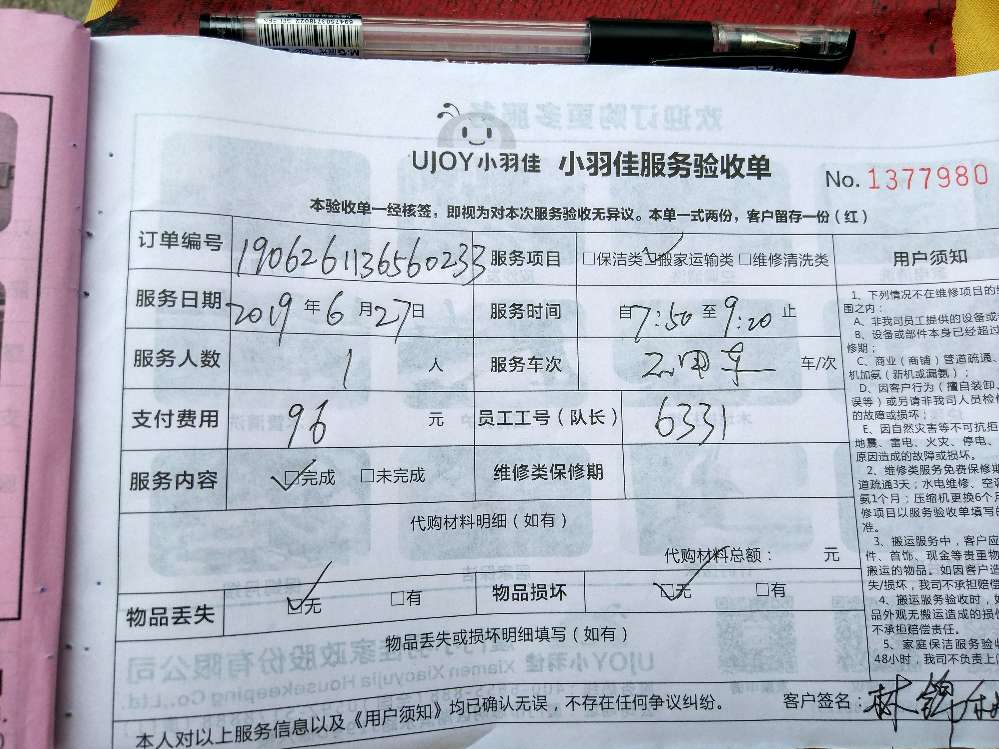 6947503718022
UJOY小羽佳 小羽佳服务验收单
No. 1377980
本验收单一经核签，即视为对本次服务验收无异议。本单一式两份，客户留存一份（红）
订单编号 1906261136560233 服务项目 □保洁类 ☑搬家运输类 □维修清洗类
服务日期 2019年6月27日 服务时间 自7:50至9:20止
服务人数 1人 服务车次 车/次
支付费用 96元 员工工号（队长） 6331
服务内容 ☑完成 □未完成 维修类保修期
代购材料明细（如有）
代购材料总额： 元
物品丢失 ☑无 □有 物品损坏 ☑无 □有
物品丢失或损坏明细填写（如有）
本人对以上服务信息以及《用户须知》均已确认无误，不存在任何争议纠纷。 客户签名：林锦
用户须知
1、下列情况不在维修项目的
围之内：
A、非我司员工提供的设备或
B、设备或部件本身已经超过
修期；
C、商业（商铺）管道疏通、
机加氨（新机或漏氨）；
D、因客户行为（擅自装卸、
误等）或另请非我司人员检修
的故障或损坏；
E、因自然灾害等不可抗拒
地震、雷电、火灾、停电、
原因造成的故障或损坏。
2、维修类服务免费保修期
道疏通3天；水电维修、空调
氨1个月；压缩机更换6个月
修项目以服务验收单填写的
准。
3、搬运服务中，客户应
件、首饰、现金等贵重物
搬运的物品。如因客户造
失/损坏，我司不承担赔偿
4、搬运服务验收时，如
品外观无搬运造成的损伤
不承担赔偿责任。
5、家庭保洁服务验收
48小时，我司不负责上
欢迎订购更多服务
UJOY小羽佳
家政股份有限公司
Xiamen Xiaoyujia Housekeeping Co.,Ltd.